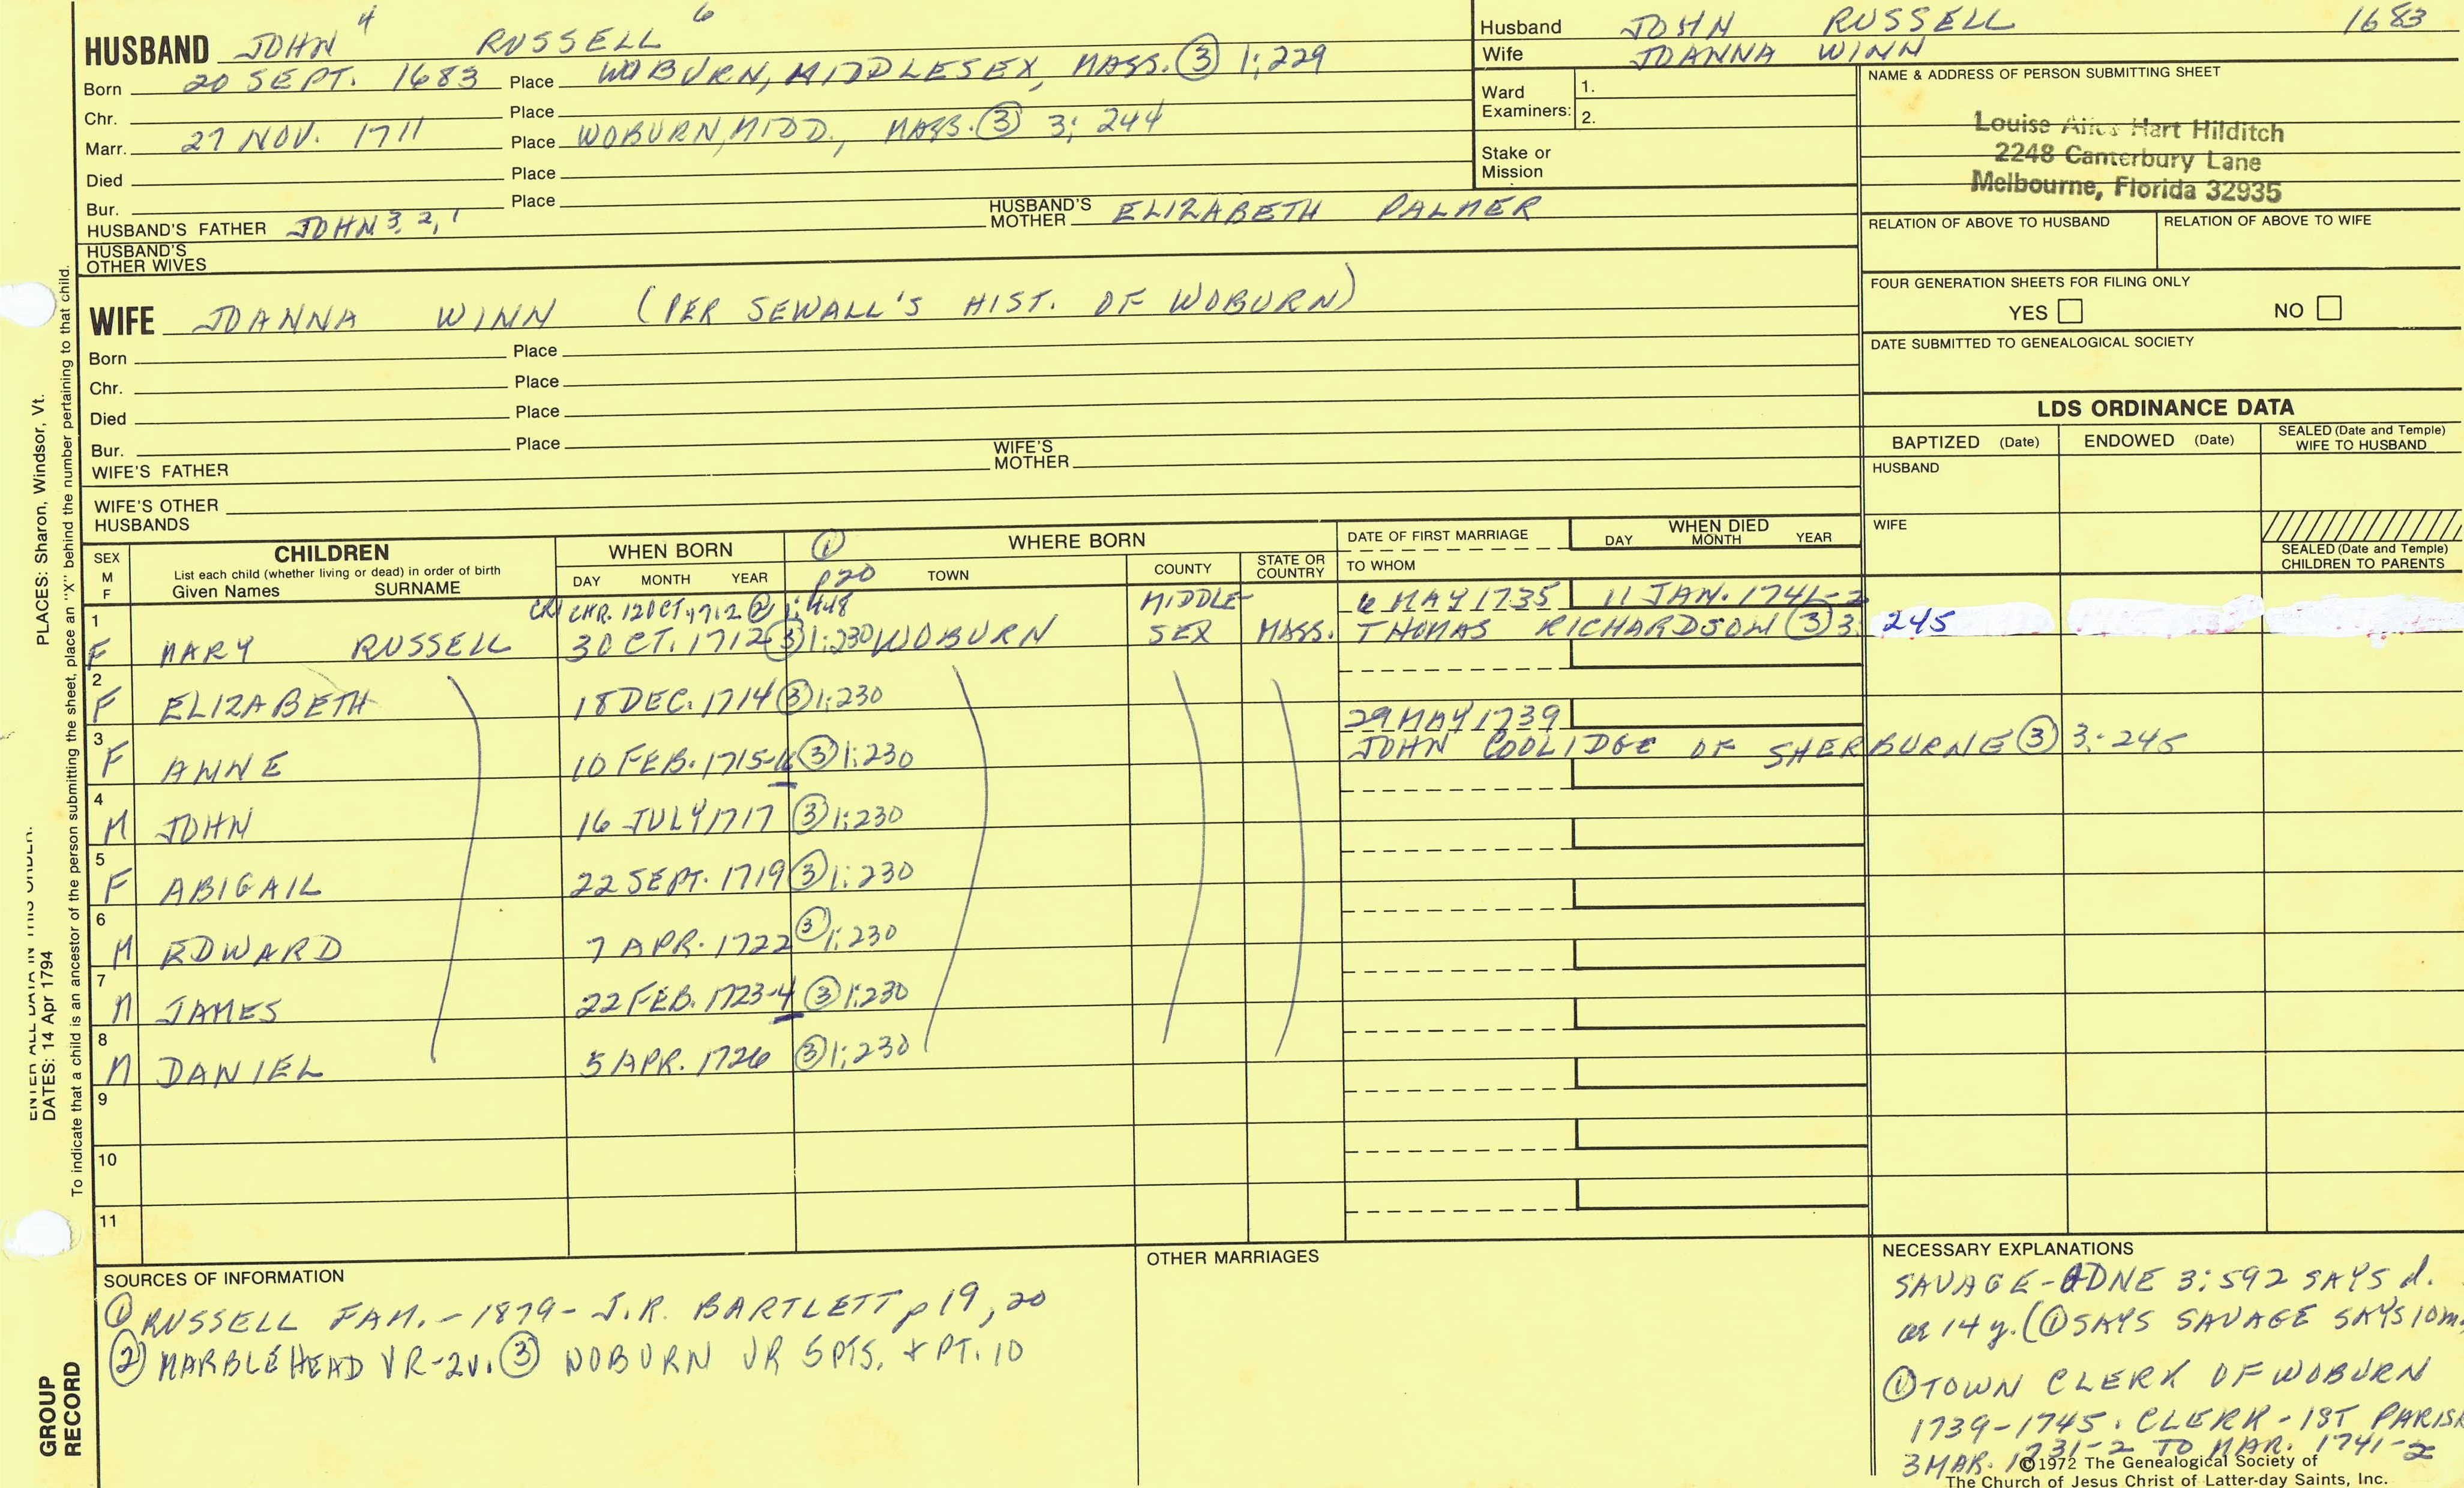 HUSBAND JOHN 4 RUSSELL 6
Born 20 SEPT. 1683 Place WOBURN, MIDDLESEX, MASS. ③ 1:229
Chr. Place
Marr. 27 NOV. 1711 Place WOBURN, MIDD., MASS. ③ 3:244
Died Place
Bur. Place
HUSBAND'S FATHER JOHN 3, 2, 1 HUSBAND'S MOTHER ELIZABETH PALMER
HUSBAND'S OTHER WIVES
WIFE JOANNA WINN (PER SEWALL'S HIST. OF WOBURN)
Born Place
Chr. Place
Died Place
Bur. Place
WIFE'S FATHER WIFE'S MOTHER
WIFE'S OTHER HUSBANDS
Husband JOHN RUSSELL 1683
Wife JOANNA WINN
Ward Examiners: 1.
2.
Stake or Mission
NAME & ADDRESS OF PERSON SUBMITTING SHEET
Louise Hart Hilditch
2248 Canterbury Lane
Melbourne, Florida 32935
RELATION OF ABOVE TO HUSBAND RELATION OF ABOVE TO WIFE
FOUR GENERATION SHEETS FOR FILING ONLY
YES NO
DATE SUBMITTED TO GENEALOGICAL SOCIETY
LDS ORDINANCE DATA
BAPTIZED (Date) ENDOWED (Date) SEALED (Date and Temple) WIFE TO HUSBAND
HUSBAND
WIFE
SEALED (Date and Temple) CHILDREN TO PARENTS
SEX M F CHILDREN WHEN BORN ① p20 WHERE BORN DATE OF FIRST MARRIAGE WHEN DIED
List each child (whether living or dead) in order of birth
Given Names SURNAME DAY MONTH YEAR TOWN COUNTY STATE OR COUNTRY TO WHOM DAY MONTH YEAR
CHR. 12 OCT. 1712 ② 1:448 MIDDLE- 6 MAY 1735 11 JAN. 1741-2
1 F MARY RUSSELL 3 OCT. 1712 ③ 1:230 WOBURN SEX MASS. THOMAS RICHARDSON ③ 3: 245
2 F ELIZABETH 18 DEC. 1714 ③ 1:230
29 MAY 1739
3 F ANNE 10 FEB. 1715-16 ③ 1:230 JOHN COOLIDGE OF SHERBURNE ③ 3:245
4 M JOHN 16 JULY 1717 ③ 1:230
5 F ABIGAIL 22 SEPT. 1719 ③ 1:230
6 M EDWARD 7 APR. 1722 ③ 1:230
7 M JAMES 22 FEB. 1723-4 ③ 1:230
8 M DANIEL 5 APR. 1726 ③ 1:230
9
10
11
SOURCES OF INFORMATION
① RUSSELL FAM. - 1879 - J.R. BARTLETT p 19, 20
② MARBLEHEAD VR-2v. ③ WOBURN VR 5 PTS. + PT. 10
OTHER MARRIAGES
NECESSARY EXPLANATIONS
SAVAGE-GDNE 3:592 SAYS d.
ae 14 y. (① SAYS SAVAGE SAYS 10m.
① TOWN CLERK OF WOBURN
1739-1745. CLERK - 1ST PARISH
3 MAR. 1731-2 TO MAR. 1741-2
©1972 The Genealogical Society of
The Church of Jesus Christ of Latter-day Saints, Inc.
PLACES: Sharon, Windsor, Vt.
ENTER ALL DATA IN THIS ORDER:
DATES: 14 Apr 1794
To indicate that a child is an ancestor of the person submitting the sheet, place an "X" behind the number pertaining to that child.
GROUP
RECORD